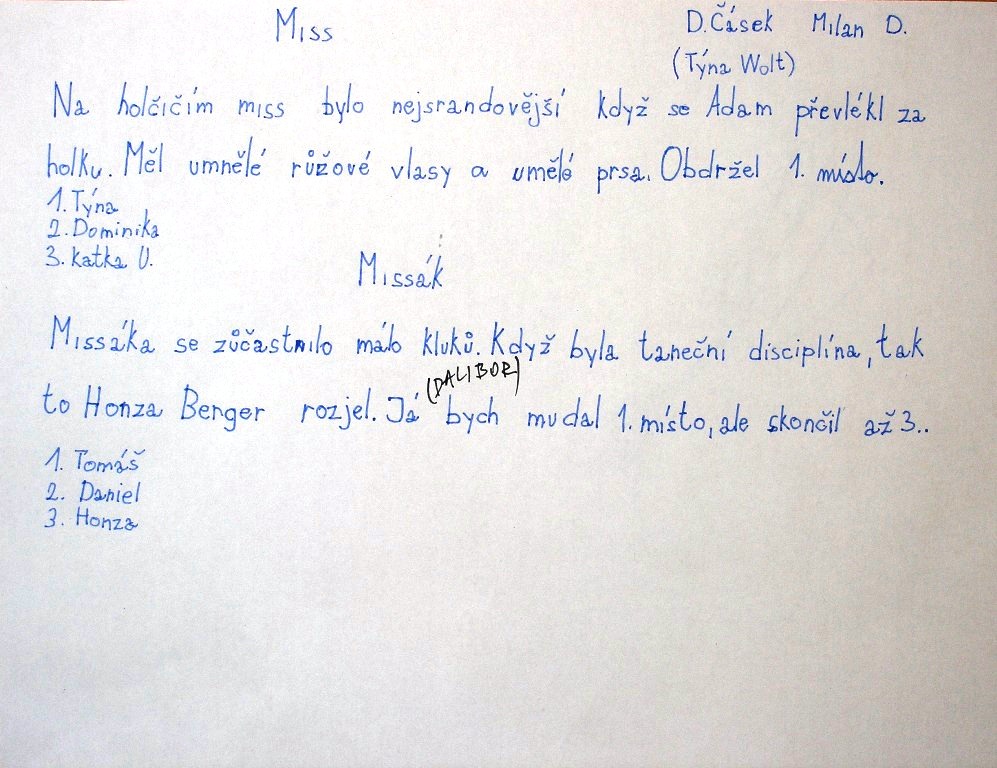 Miss
D. Čásek Milan D.
(Týna Wolt)
Na holčičím miss bylo nejsrandovější když se Adam převlékl za
holku. Měl umnělé růžové vlasy a umělé prsa. Obdržel 1. místo.
1. Týna
2. Dominika
3. Katka U.
Missák
Missáka se zůčastnilo málo kluků. Když byla taneční disciplína, tak
(DALIBOR)
to Honza Berger rozjel. Já bych mu dal 1. místo, ale skončil až 3..
1. Tomáš
2. Daniel
3. Honza